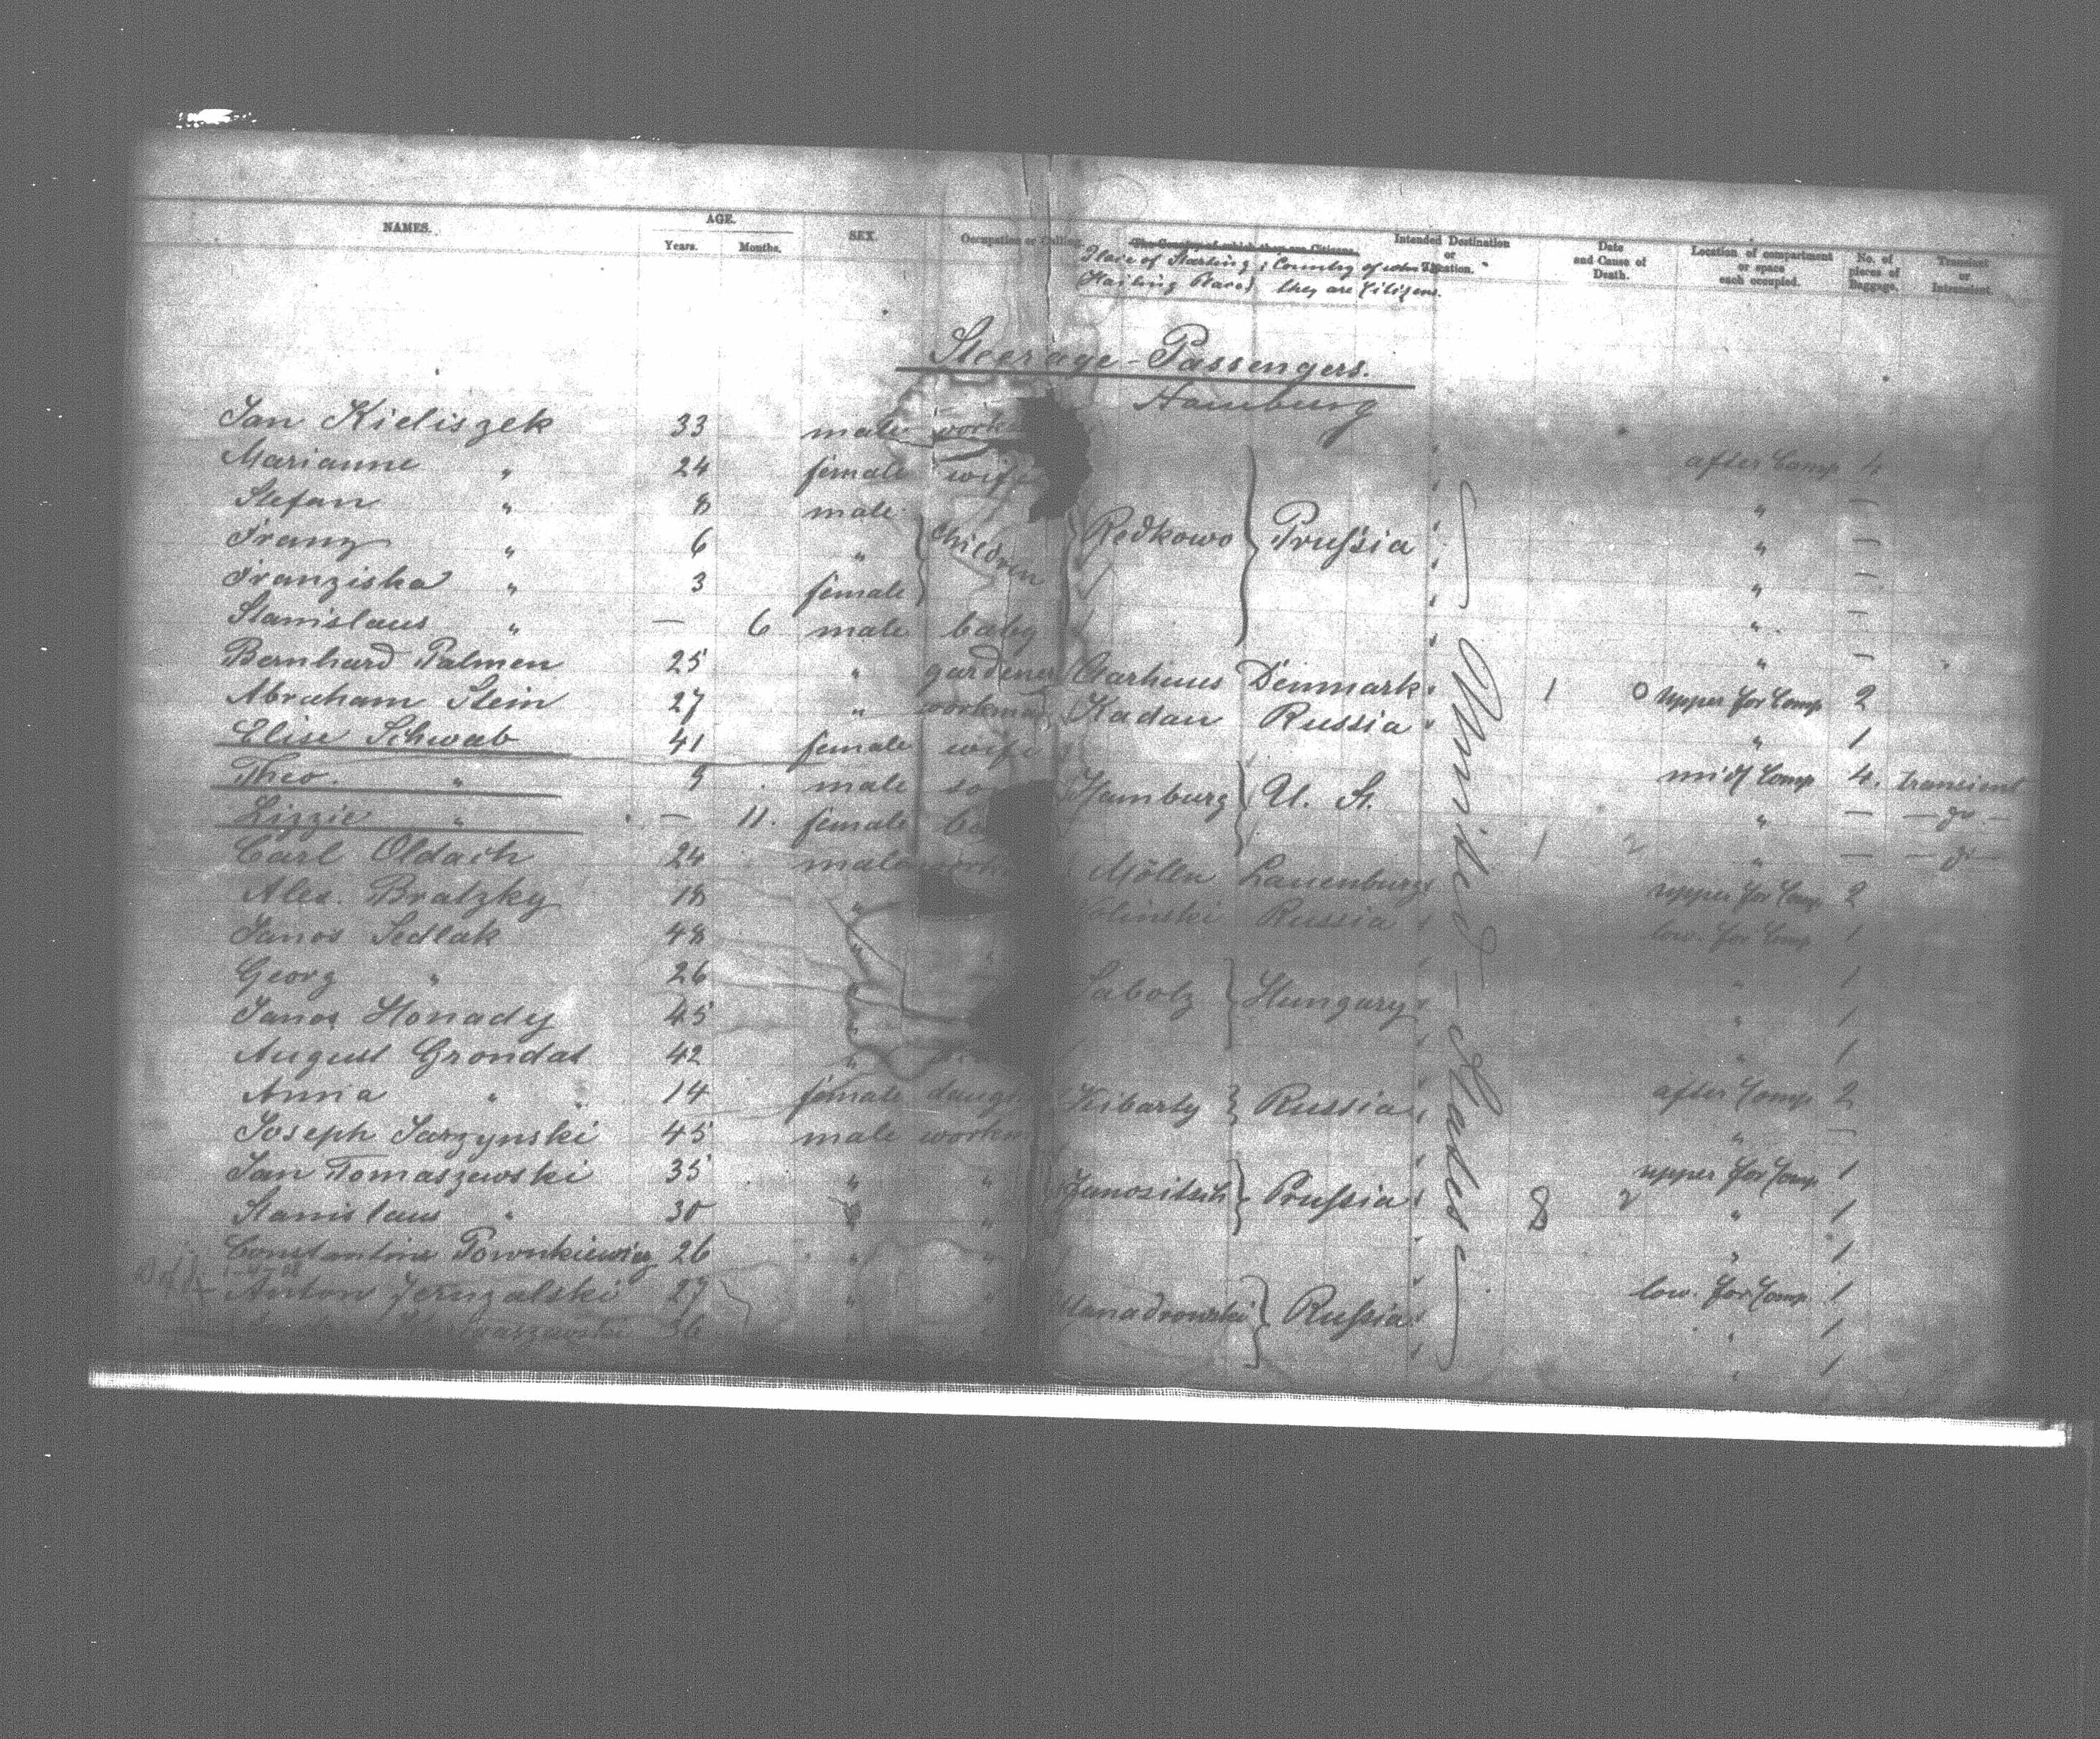 NAMES. AGE. SEX. Occupation or Calling. The Country of which they are Citizens. Intended Destination or Location. Date and Cause of Death. Location of compartment or space each occupied. No. of pieces of Baggage. Transient or Intransient.
Years. Months. Place of Starting, Country of
they are Citizens.
Steerage-Passengers.
Hamburg
Jan Kieliszek 33 male after Comp 4
Marianne " 24 female wife " —
Stefan " 8 male " —
Franz " 6 " Children Redkowo Prussia " —
Franziska " 3 female " —
Stanislaus " — 6 male baby " —
Bernhard Palmen 25 " gardener Aarhuus Denmark 1 0 upper for Comp 2
Abraham Stein 27 " workman Kadan Russia " 1
Elise Schwab 41 female wife mid Comp 4. transient
Theo. " 5 male Hamburg U. St. " — — do —
Lizzie " — 11. female " — — do —
Carl Oldach 24 male Mölln Lauenburg upper for Comp 2
Alex. Bratzky 18 " Russia low. for Comp 1
Janos Sedlak 48 " " 1
Georg " 26 " Sabolz Hungary " 1
Janos Honady 45 " " 1
August Grondat 42 " after Comp 2
Anna " 14 female Kibarty Russia " —
Joseph Sarzynski 45 male upper for Comp 1
Jan Tomaszewski 35 " " Prussia 8 2 " 1
Stanislaus " 30 " " " 1
Constantine 26 " " low. for Comp 1
Anton 27 " " Russia " 1
36 " 1
United States